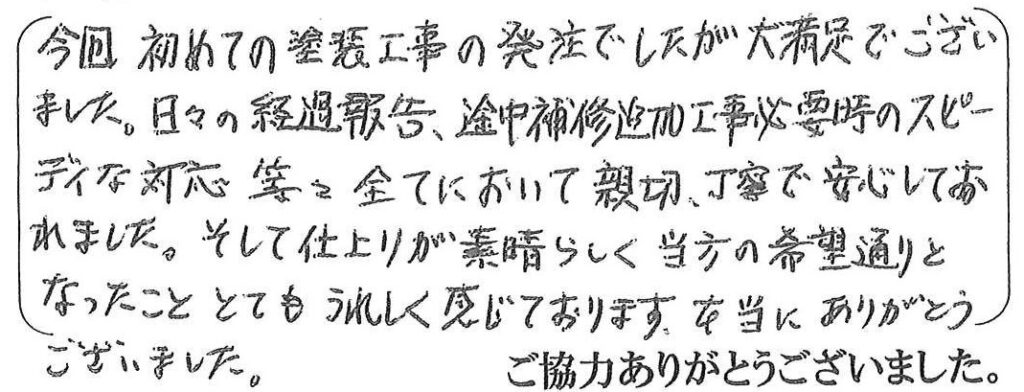 今回 初めての塗装工事の発注でしたが大満足でござい
ました。日々の経過報告、途中補修追加工事必要時のスピー
ディな対応 等々 全てにおいて親切、丁寧で安心してお
れました。そして仕上りが素晴らしく当方の希望通りと
なったこと とてもうれしく感じております。本当にありがとう
ございました。
ご協力ありがとうございました。